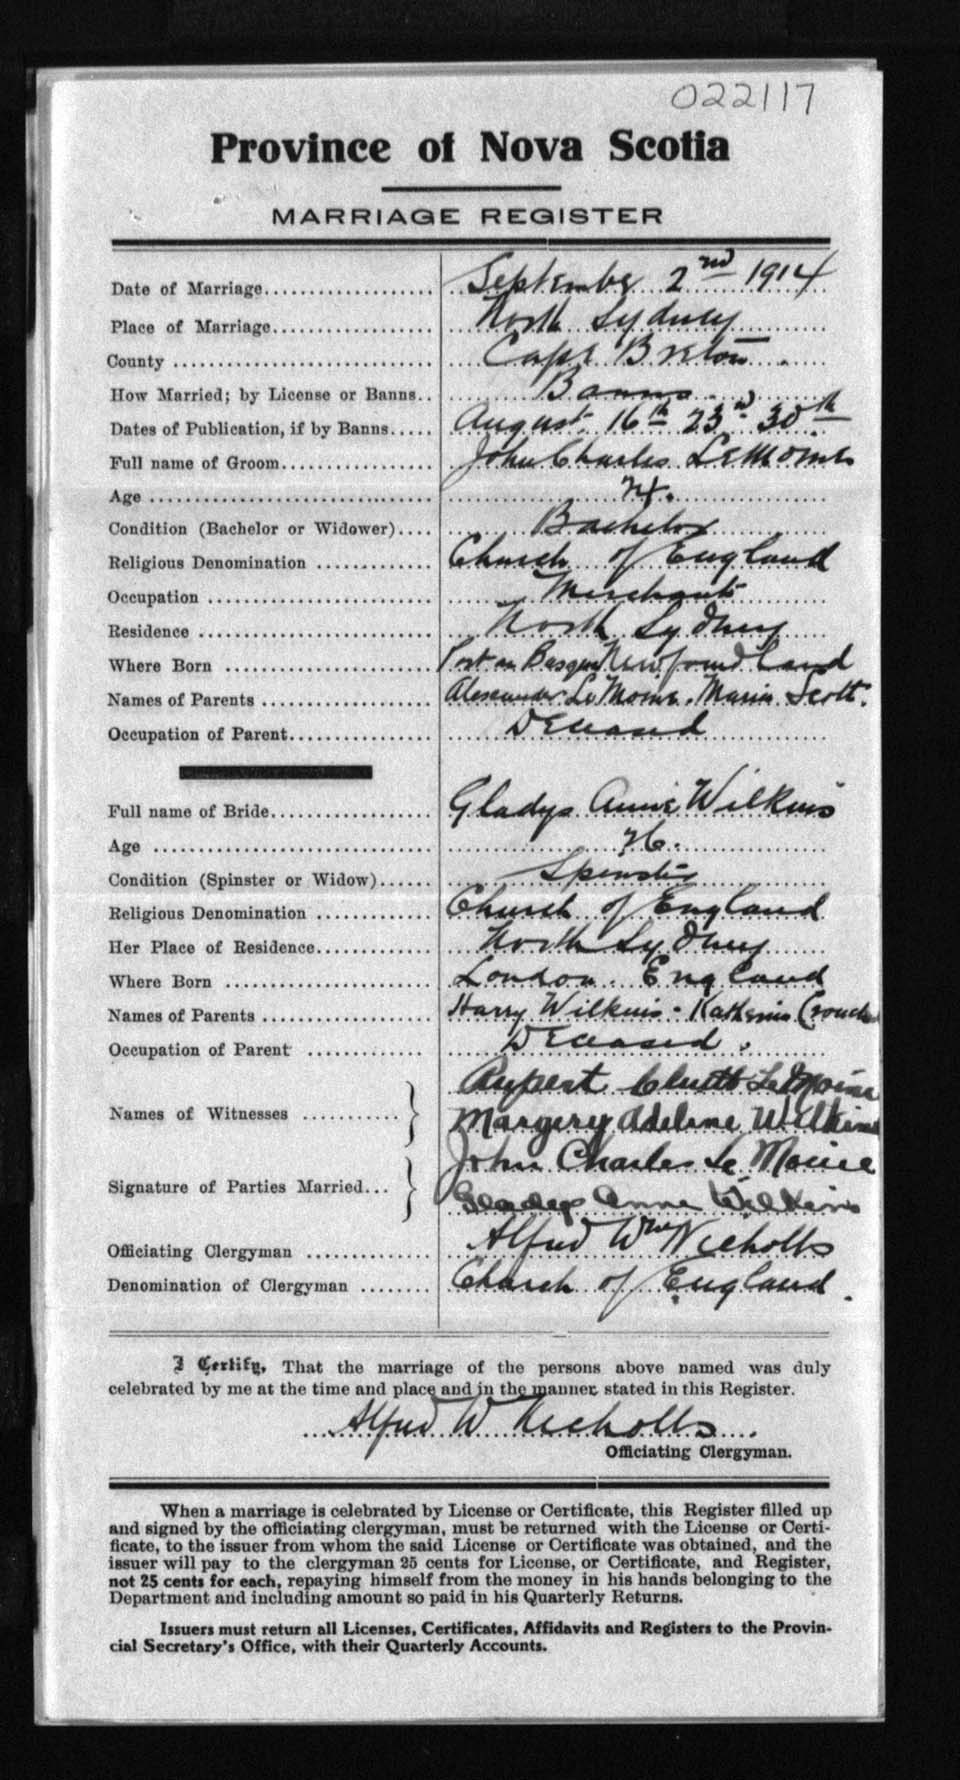 022117
Province of Nova Scotia
MARRIAGE REGISTER
Date of Marriage.................... September 2nd 1914
Place of Marriage.................. North Sydney
County ............................ Cape Breton
How Married; by License or Banns.. Banns
Dates of Publication, if by Banns..... August 16th 23d 30th
Full name of Groom................ John Charles LeMoine
Age ..............................
Condition (Bachelor or Widower).... Bachelor
Religious Denomination ............ Church of England
Occupation ........................ Merchant
Residence ......................... North Sydney
Where Born ...................... Port au Basque Newfoundland
Names of Parents .................. Alexander LeMoine. Maria Scott.
Occupation of Parent............... Deceased
Full name of Bride.................. Gladys Annie Wilkins
Age .............................. 26.
Condition (Spinster or Widow)...... Spinster
Religious Denomination ............ Church of England
Her Place of Residence............. North Sydney
Where Born ...................... London. England
Names of Parents .................. Harry Wilkins - Crouch
Occupation of Parent ............ Deceased.
Rupert LeMoine
Names of Witnesses ........... } Margery Adeline Wilkins
John Charles Le Moine
Signature of Parties Married... } Gladys Anne Wilkins
Officiating Clergyman ............. Alfred Wm Nicholls
Denomination of Clergyman ........ Church of England.
I Certify, That the marriage of the persons above named was duly
celebrated by me at the time and place and in the manner stated in this Register.
Alfred W Nicholls
Officiating Clergyman.
When a marriage is celebrated by License or Certificate, this Register filled up
and signed by the officiating clergyman, must be returned with the License or Certi-
ficate, to the issuer from whom the said License or Certificate was obtained, and the
issuer will pay to the clergyman 25 cents for License, or Certificate, and Register,
not 25 cents for each, repaying himself from the money in his hands belonging to the
Department and including amount so paid in his Quarterly Returns.
Issuers must return all Licenses, Certificates, Affidavits and Registers to the Provin-
cial Secretary's Office, with their Quarterly Accounts.